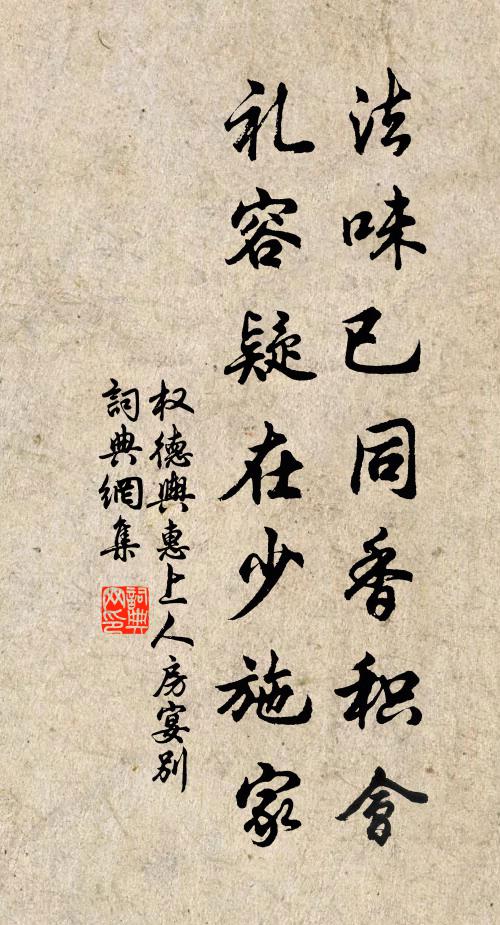 法味已同香积會
礼容疑在少施家
权德輿惠上人房宴别
詞典網集
詞典
网印